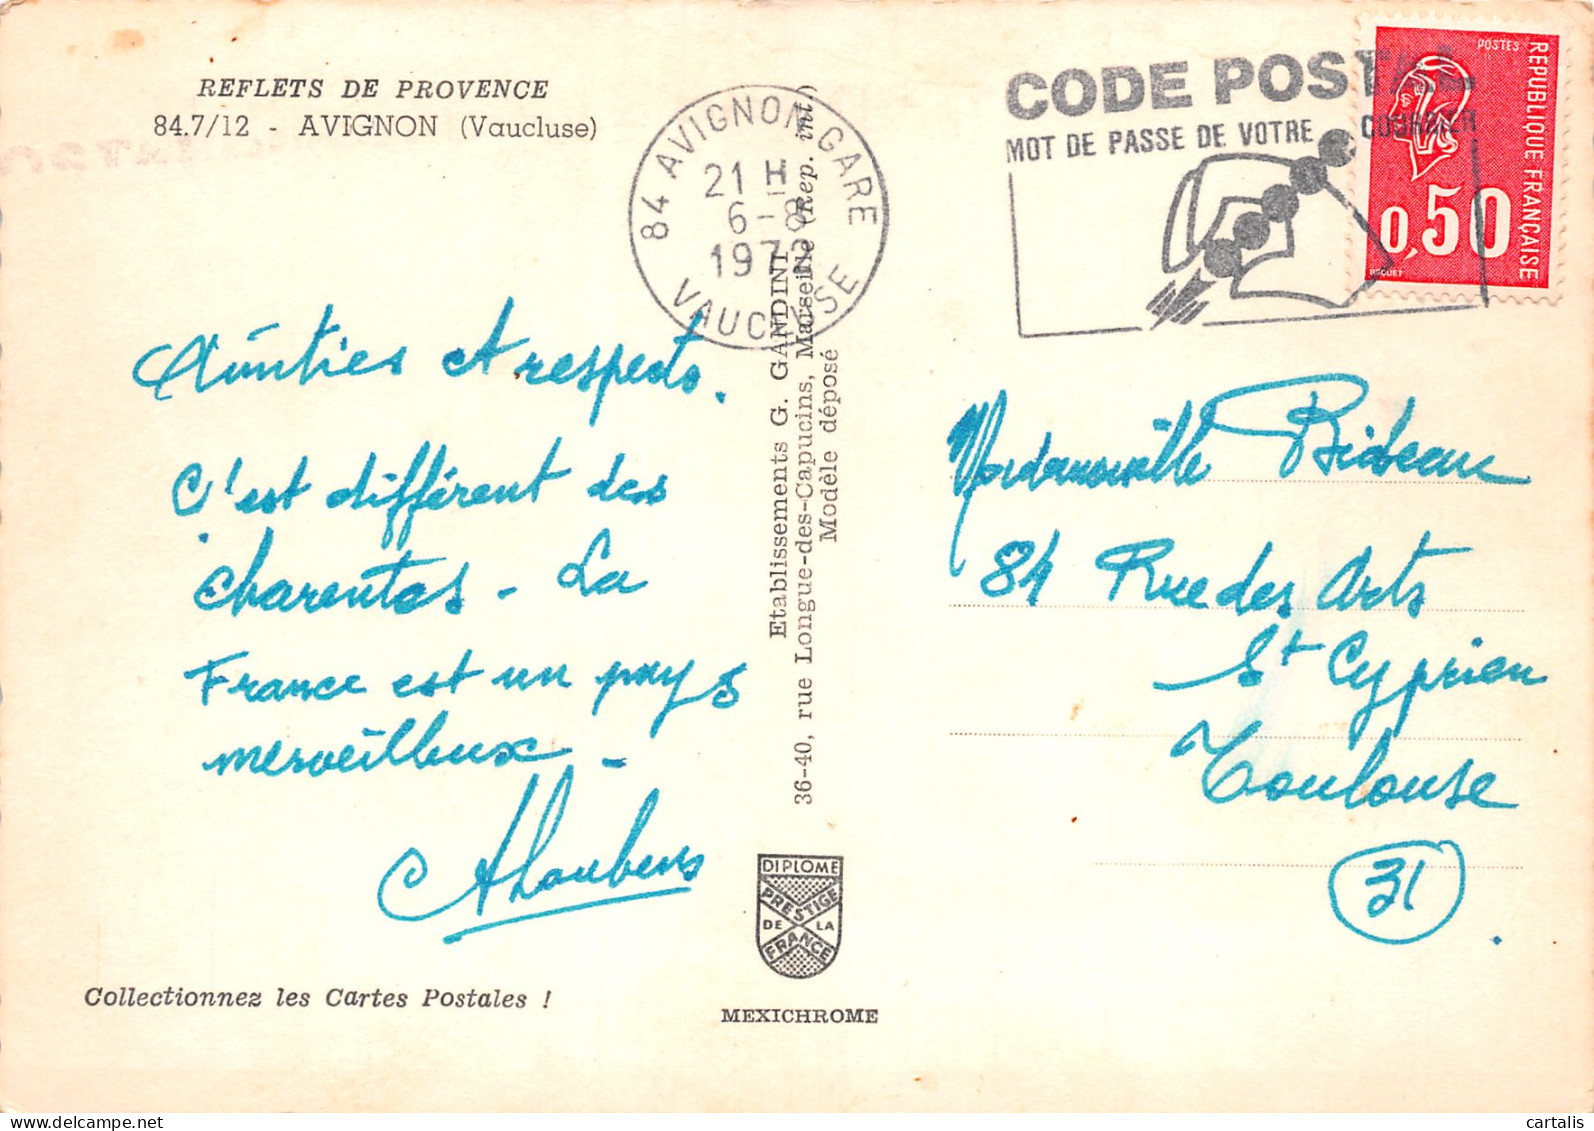 REFLETS DE PROVENCE
84.7/12 - AVIGNON (Vaucluse)
84 AVIGNON GARE
21 H
6-8
197
VAUCLUSE
CODE POSTAL
MOT DE PASSE DE VOTRE COURRIER
POSTES
REPUBLIQUE FRANÇAISE
0,50
BEQUET
Amitiés et respects.
C'est différent des
charentes - La
France est un pays
merveilleux -
Etablissements G. GANDINI
36-40, rue Longue-des-Capucins, Marseille (Rep. int.)
Modèle déposé
Mademoiselle Bideau
84 Rue des Arts
St Cyprien
Toulouse
31
DIPLOME
PRESTIGE
DE LA
FRANCE
MEXICHROME
Collectionnez les Cartes Postales !
cartalis
www.delcampe.net